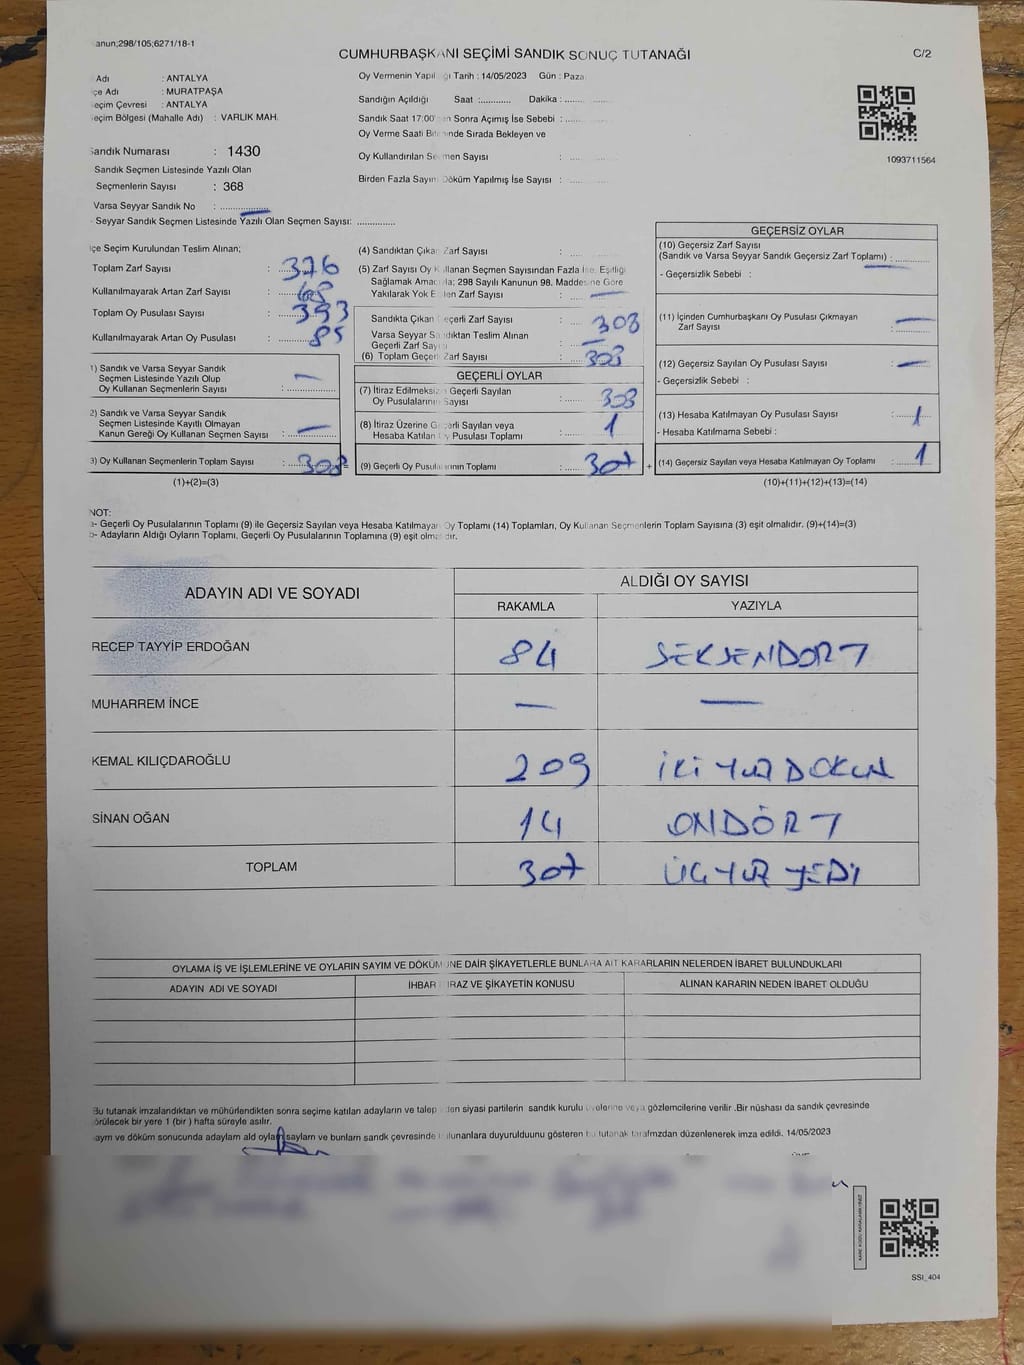 anun;298/105;6271/18-1
CUMHURBAŞKANI SEÇİMİ SANDIK SONUÇ TUTANAĞI
C/2
Adı : ANTALYA
çe Adı : MURATPAŞA
eçim Çevresi : ANTALYA
eçim Bölgesi (Mahalle Adı) : VARLIK MAH.
Sandık Numarası : 1430
Sandık Seçmen Listesinde Yazılı Olan
Seçmenlerin Sayısı : 368
Varsa Seyyar Sandık No : —
- Seyyar Sandık Seçmen Listesinde Yazılı Olan Seçmen Sayısı: ..............
Oy Vermenin Yapıl ığı Tarih : 14/05/2023 Gün : Paza
Sandığın Açıldığı Saat :............ Dakika : .......
Sandık Saat 17:00' en Sonra Açımış İse Sebebi : .....
Oy Verme Saati Bit inde Sırada Bekleyen ve
Oy Kullandırılan Seçmen Sayısı :
Birden Fazla Sayım Döküm Yapılmış İse Sayısı :
1093711564
çe Seçim Kurulundan Teslim Alınan;
Toplam Zarf Sayısı : 376
Kullanılmayarak Artan Zarf Sayısı : 68
Toplam Oy Pusulası Sayısı : 393
Kullanılmayarak Artan Oy Pusulası : 85
1) Sandık ve Varsa Seyyar Sandık
Seçmen Listesinde Yazılı Olup
Oy Kullanan Seçmenlerin Sayısı : —
2) Sandık ve Varsa Seyyar Sandık
Seçmen Listesinde Kayıtlı Olmayan
Kanun Gereği Oy Kullanan Seçmen Sayısı : —
3) Oy Kullanan Seçmenlerin Toplam Sayısı : 308 =
(1)+(2)=(3)
(4) Sandıktan Çıkan Zarf Sayısı :
(5) Zarf Sayısı Oy Kullanan Seçmen Sayısından Fazla İse, Eşitliği
Sağlamak Amacıyla; 298 Sayılı Kanunun 98. Maddesine Göre
Yakılarak Yok Edilen Zarf Sayısı : —
Sandıkta Çıkan Geçerli Zarf Sayısı : 308
Varsa Seyyar Sandıktan Teslim Alınan
Geçerli Zarf Sayısı : —
(6) Toplam Geçerli Zarf Sayısı : 308
GEÇERLİ OYLAR
(7) İtiraz Edilmeksizin Geçerli Sayılan
Oy Pusulalarının Sayısı : 308
(8) İtiraz Üzerine Geçerli Sayılan veya
Hesaba Katılan Oy Pusulası Toplamı : 1
(9) Geçerli Oy Pusulalarının Toplamı : 307 +
GEÇERSİZ OYLAR
(10) Geçersiz Zarf Sayısı
(Sandık ve Varsa Seyyar Sandık Geçersiz Zarf Toplamı) : —
- Geçersizlik Sebebi :
(11) İçinden Cumhurbaşkanı Oy Pusulası Çıkmayan
Zarf Sayısı : —
(12) Geçersiz Sayılan Oy Pusulası Sayısı : —
- Geçersizlik Sebebi :
(13) Hesaba Katılmayan Oy Pusulası Sayısı : 1
- Hesaba Katılmama Sebebi :
(14) Geçersiz Sayılan veya Hesaba Katılmayan Oy Toplamı : 1
(10)+(11)+(12)+(13)=(14)
NOT:
a- Geçerli Oy Pusulalarının Toplamı (9) ile Geçersiz Sayılan veya Hesaba Katılmayan Oy Toplamı (14) Toplamları, Oy Kullanan Seçmenlerin Toplam Sayısına (3) eşit olmalıdır. (9)+(14)=(3)
b- Adayların Aldığı Oyların Toplamı, Geçerli Oy Pusulalarının Toplamına (9) eşit olmalıdır.
ADAYIN ADI VE SOYADI
ALDIĞI OY SAYISI
RAKAMLA YAZIYLA
RECEP TAYYİP ERDOĞAN 84 SEKSENDÖRT
MUHARREM İNCE — —
KEMAL KILIÇDAROĞLU 209 İKİ YÜZ DOKUZ
SİNAN OĞAN 14 ONDÖRT
TOPLAM 307 ÜÇ YÜZ YEDİ
OYLAMA İŞ VE İŞLEMLERİNE VE OYLARIN SAYIM VE DÖKÜMÜNE DAİR ŞİKAYETLERLE BUNLARA AİT KARARLARIN NELERDEN İBARET BULUNDUKLARI
ADAYIN ADI VE SOYADI
İHBAR İTİRAZ VE ŞİKAYETİN KONUSU
ALINAN KARARIN NEDEN İBARET OLDUĞU
Bu tutanak imzalandıktan ve mühürlendikten sonra seçime katılan adayların ve talep eden siyasi partilerin sandık kurulu üyelerine veya gözlemcilerine verilir .Bir nüshası da sandık çevresinde
örülecek bir yere 1 (bir ) hafta süreyle asılır.
aym ve döküm sonucunda adaylam ald oylam saylam ve bunlam sandk çevresinde bulunanlara duyurulduunu gösteren bu tutanak tarafmzdan düzenlenerek imza edildi. 14/05/2023
SSI_404